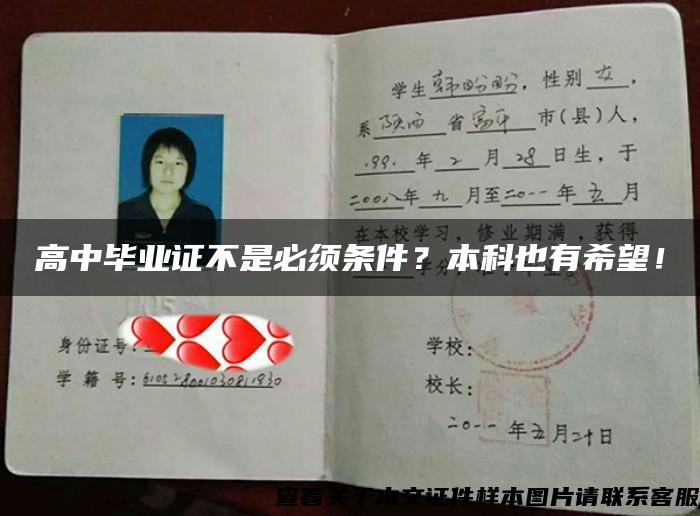 学生韩盼盼，性别女，
系陕西省富平市(县)人，
199.年2月28日生，于
二00八年九月至二0一一年五月
在本校学习，修业期满，获得
高中毕业证不是必须条件？本科也有希望！
学分
身份证号：
学籍号：610528001030811930
学校：
校长：
二0一一年五月二十日
查看关于本文证件样本图片请联系客服